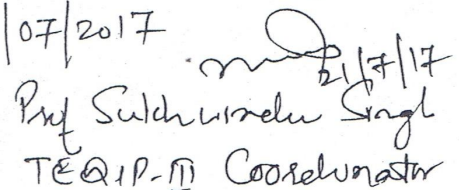 /07/2017
21/7/17
Prof Sukhwinder Singh
TEQIP-III Coordinator